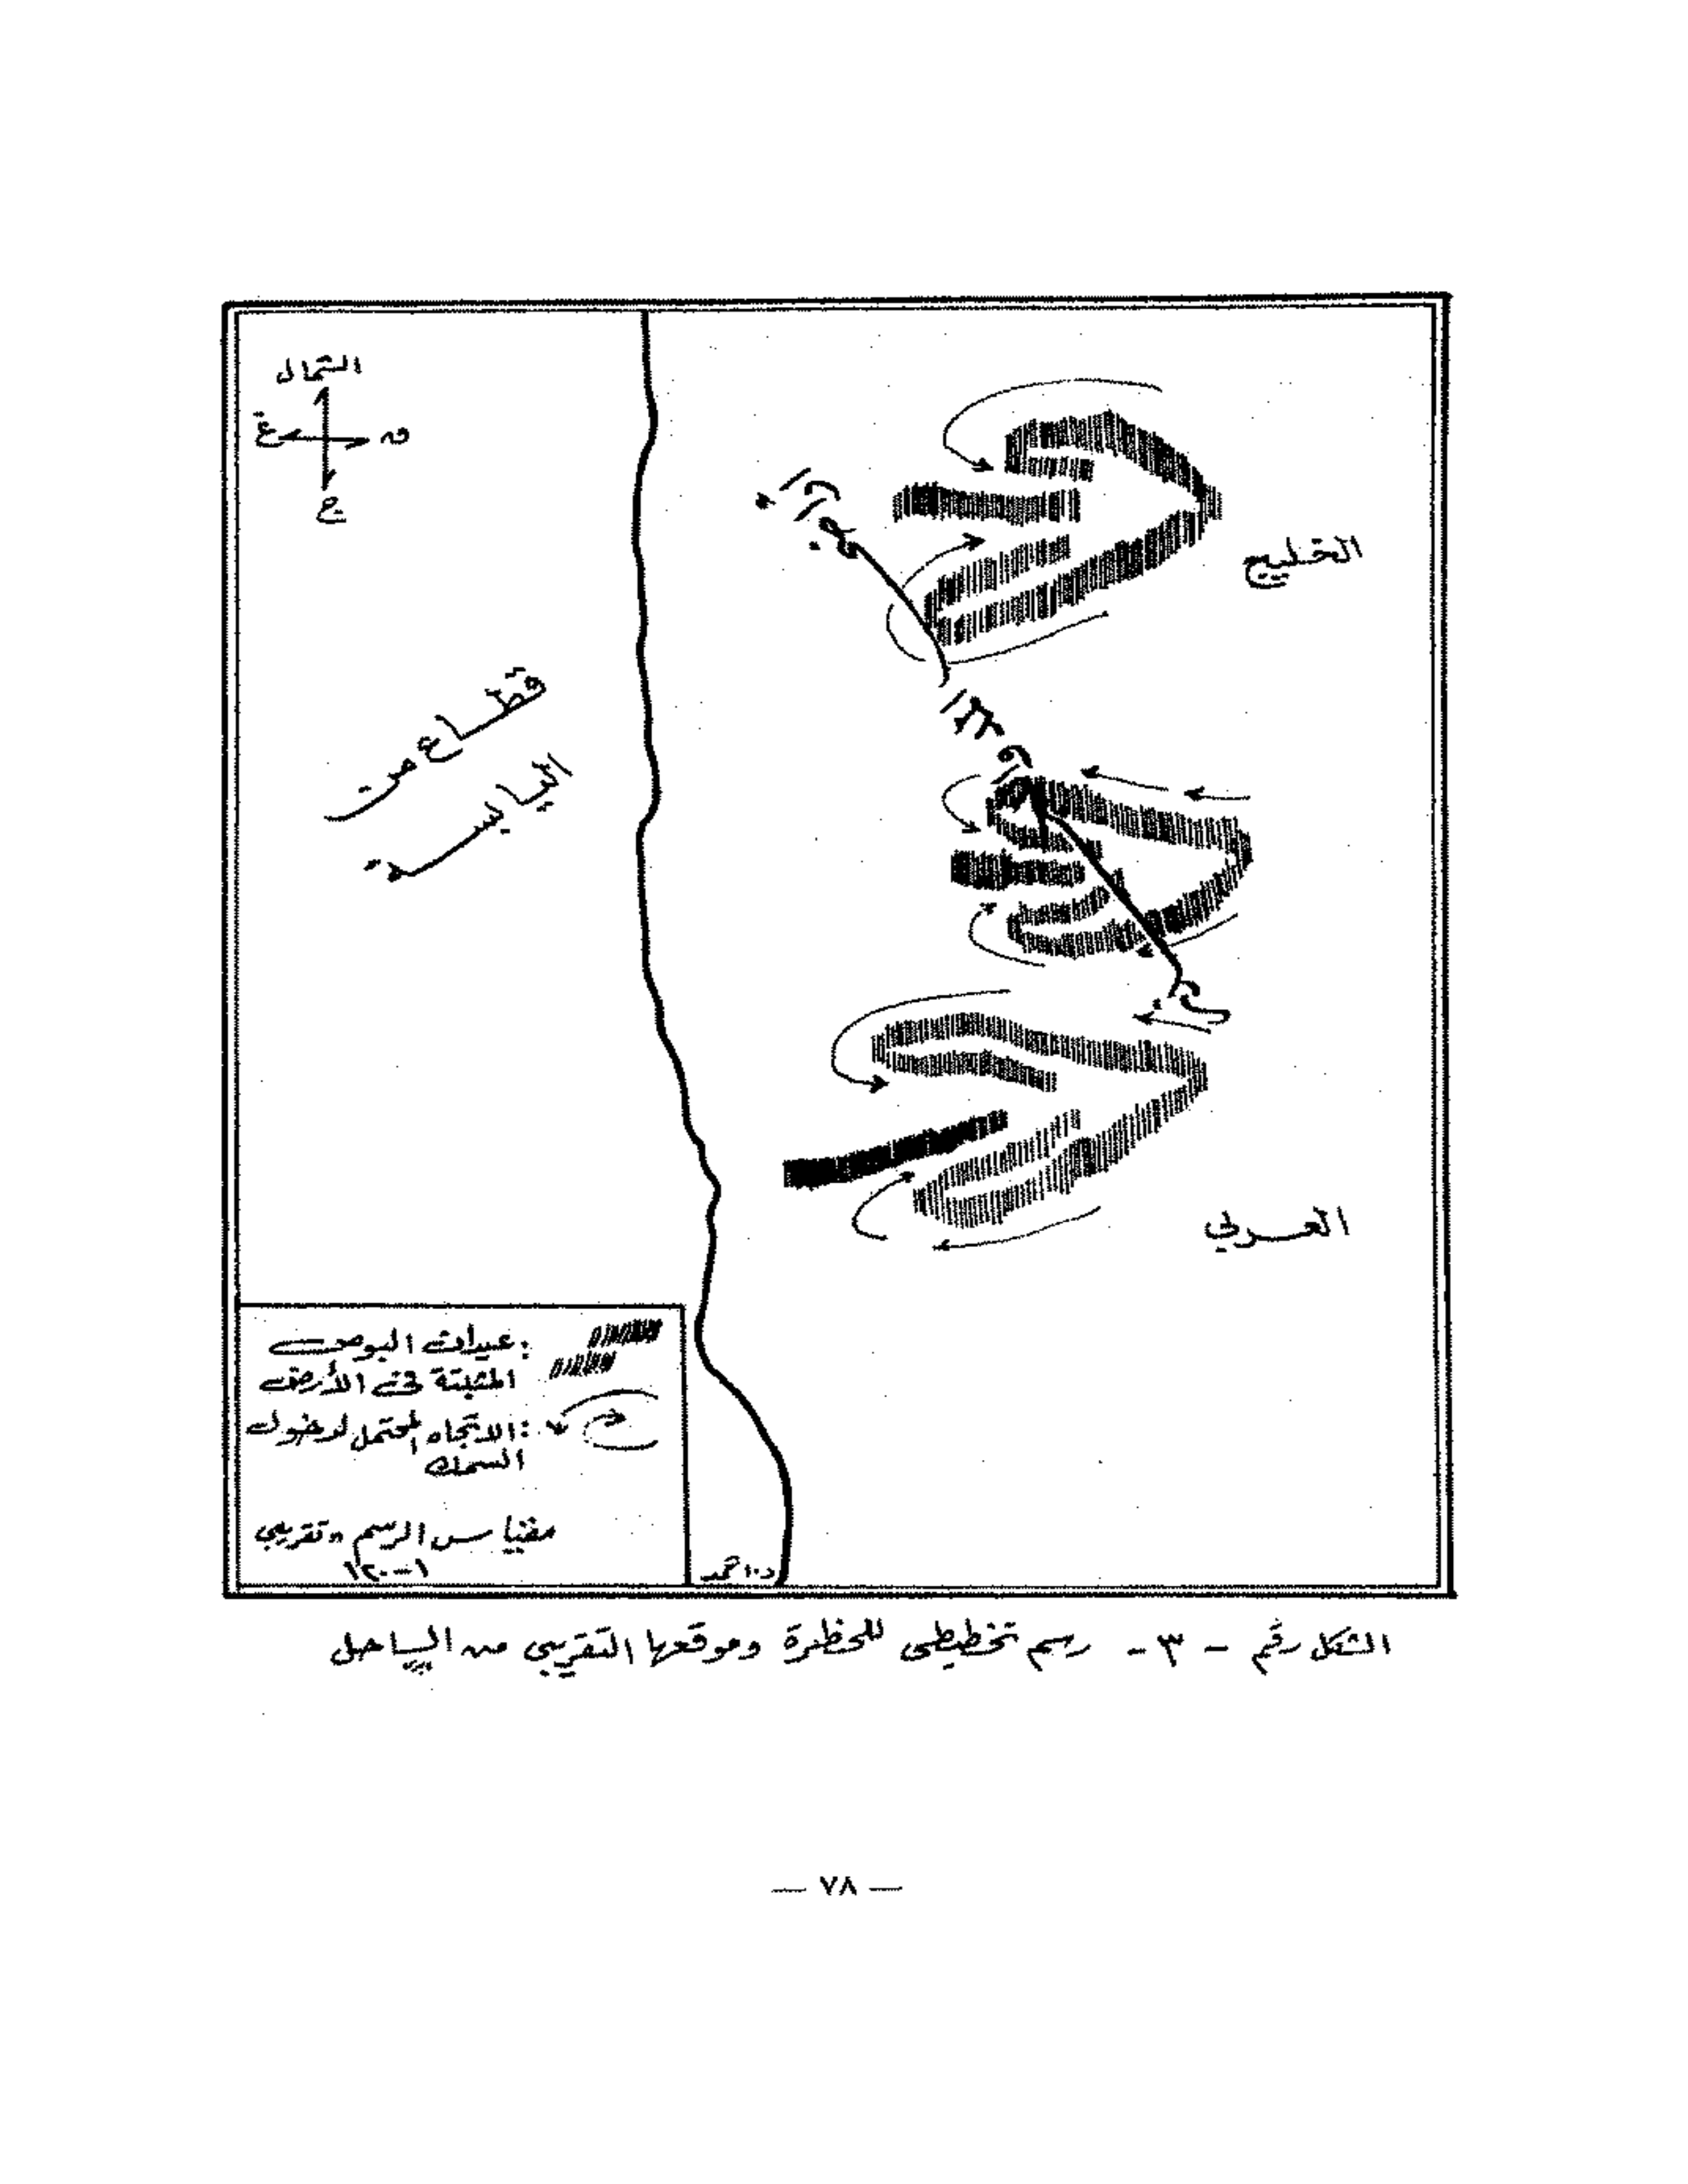 الشمال
غ
ق
ج
الخليج
قطاع من
اليابسة
العربي
: عيدان البوص
المثبتة في الأرض
: الاتجاه المحتمل لدخول
السمك
مقياس الرسم "تقريبي
١-١٢٠
د. احمد
الشكل رقم - ٣ - رسم تخطيطي للحظرة وموقعها التقريبي من الساحل
— ٧٨ —